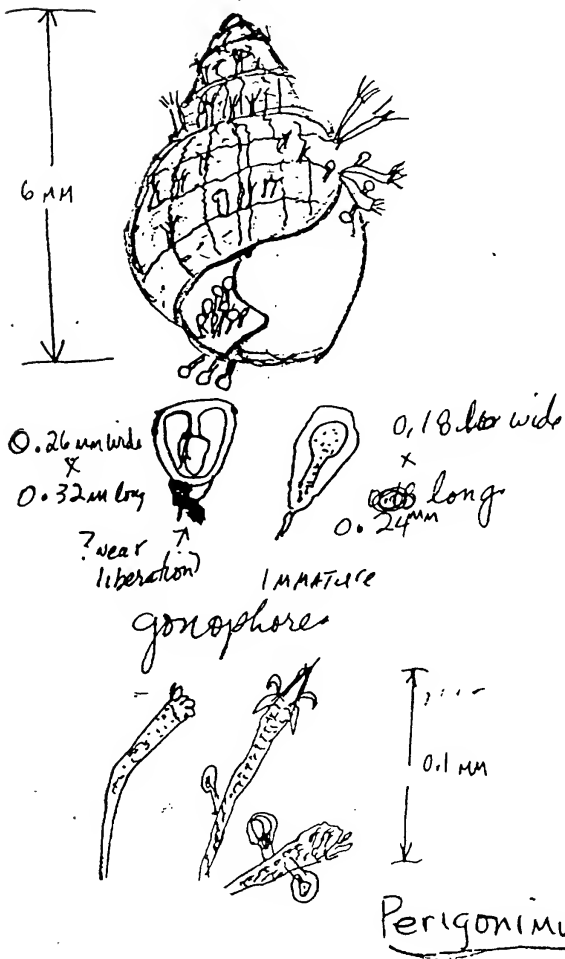 6 MM
0.26 mm wide
x
0.32 m long
? near
liberation)
0,18 wide
x
long
0.24 MM
IMMATURE
gonophores
0.1 MM
Perigonimu